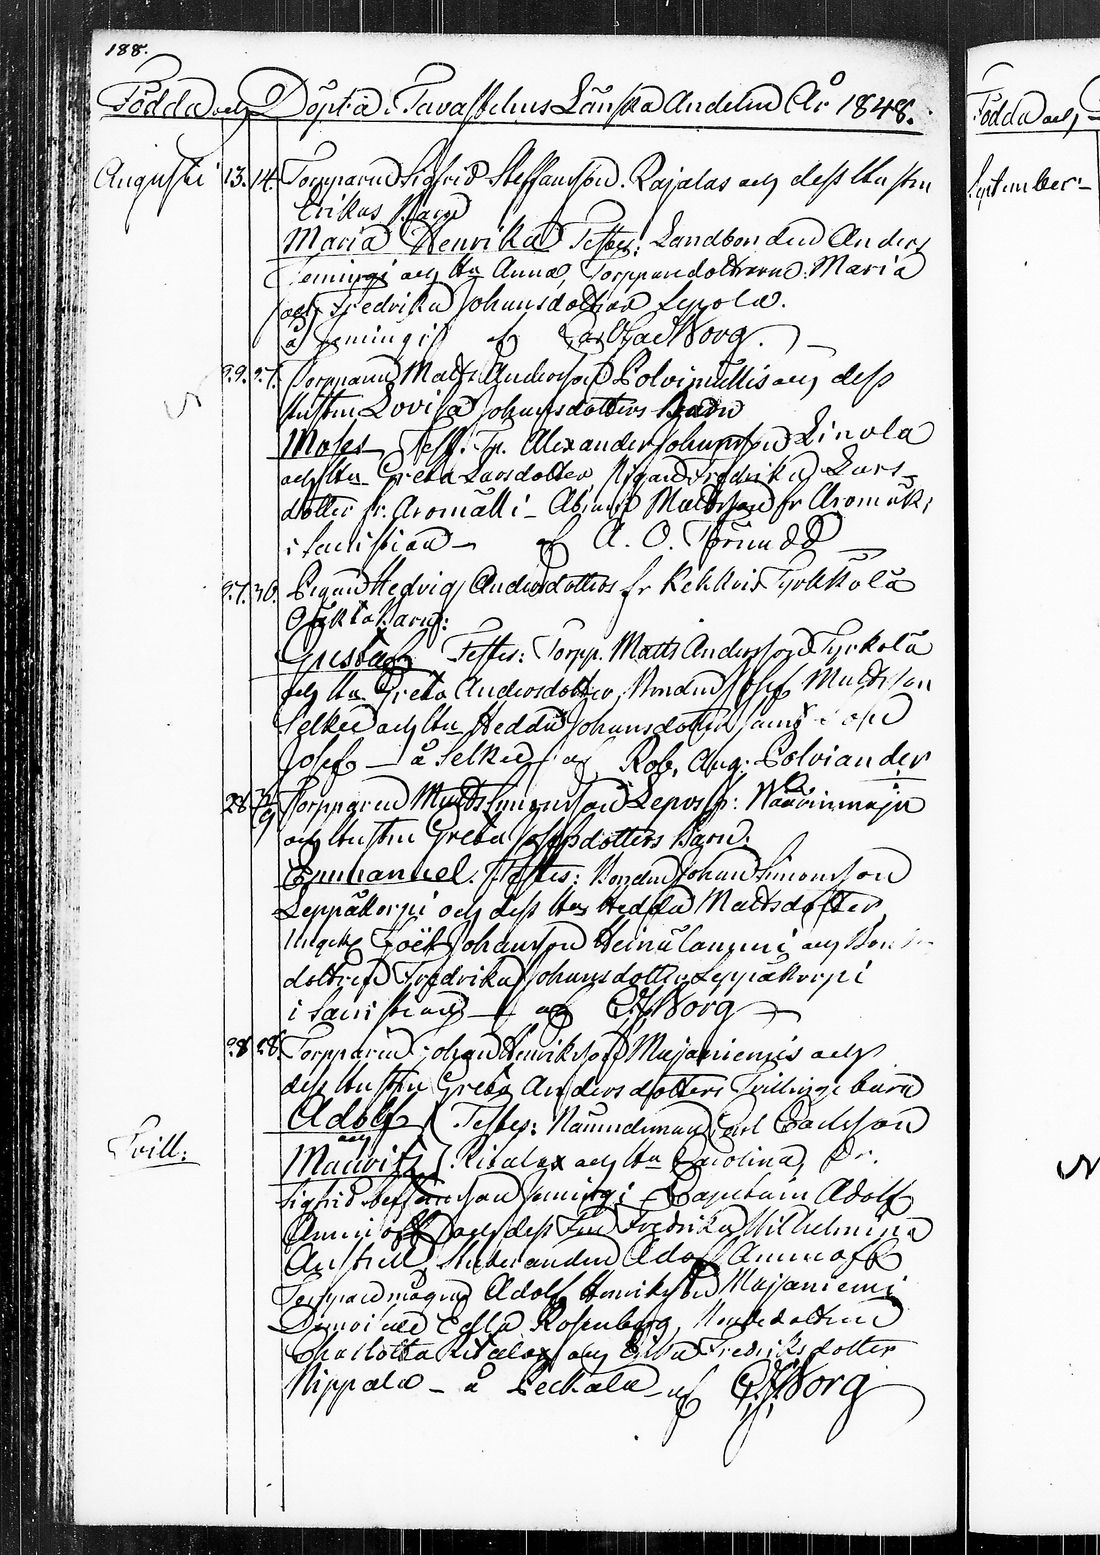 188.
Födda och Döpta i Tavastehus Länska Andelen År 1848.
Födda och
Augusti 13. 14. Torparen Sigfrid Steffansson Rajalas och dess Hustru
September
Erikas Barn
Maria Henrika Testes: Landbonden Anders
Jemingi och Hu Anna, Torparedöttrarna Maria
och Fredrika Johansdöttrar Lepola.
å Jemingi af Borg.
29. 27. Torparen Matts Andersson Polvimullis och dess
Hustru Lovisa Johansdotters Barn
Moses Test. Tp. Alexander Johansson Linola
och Hu Greta Larsdotter, Pigan Fredrika Lars
dotter fr. Aromäki Mattsson fr Aromäki
i Sariistian af A. O. Törnudd
27. 30. Pigan Hedvig Andersdotters fr Kehkvis Tyrkkölä
Oäkta Barn:
Gustaf Testes: Torpp. Matts Andersson Tyrkolä
och Hu Greta Andersdotter, Bonden Josef Mattsson
Selkee och Hu Hedda Johansdotter samt Son
Josef å Selkee af Rob. Aug. Polviander
28. 3/9 Torparen Matts Simonsson Lepos fr. Wäärinmaja
och Hustru Greta Josefsdotters Barn.
Emmanuel. Testes: Bonden Johan Simonsson
Leppäkorpi och dess Hu Hedda Mattsdotter
Ungk. Joël Johansson Heinälammi och Bonde
dottren Fredrika Johansdotter Leppäkorpi
i Saristian af Borg
28 28. Torparen Johan Henriksson Majaniemis och
dess Hustru Greta Andersdotters Tvillinge barn
Adolf Testes: Nämndeman Carl Carlsson
Tvill: och
Mauritz Ritalax och Hu Carolina, Dr.
Sigfrid Steffansson Jemingi Capitain Adolf
Aminoff och dess Fru Fredrika Wilhelmina
Studeranden Adolf Aminoff
Torparemågen Adolf Henriksson Majaniemi
Demoiselle Rosenberg, Bondedottren
Charlotta Ritalax och Fredriksdotter
Nippala å Peckala af Borg